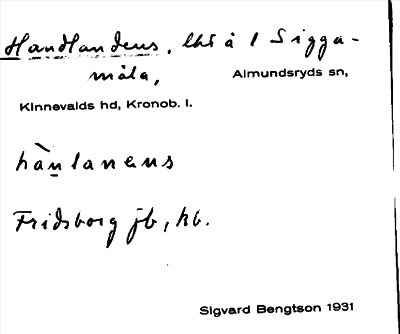 Handlandens, lht å 1 Sigga-
måla,
Almundsryds sn,
Kinnevalds hd, Kronob. l.
hàṉlanens
Fridsborg jb, kb.
Sigvard Bengtson 1931